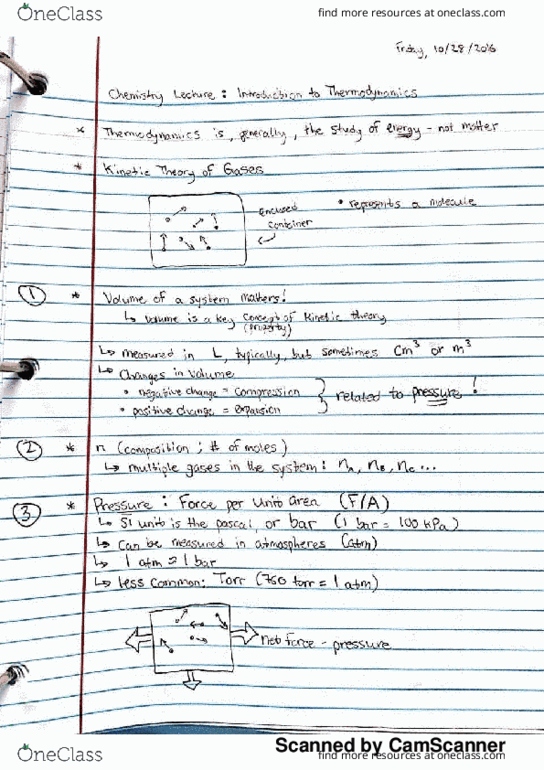 OneClass
find more resources at oneclass.com
Friday, 10/28/2016
Chemistry Lecture : Introduction to Thermodynamics
* Thermodynamics is, generally, the study of energy - not matter
* Kinetic Theory of Gases
enclosed container
• represents a molecule
① * Volume of a system matters!
↳ volume is a key concept of kinetic theory
(property)
↳ measured in L, typically, but sometimes cm³ or m³
↳ Changes in volume
• negative change = compression
• positive change = expansion
} related to pressure!
② * n (composition ; # of moles)
↳ multiple gases in the system : nA, nB, nC ...
③ * Pressure : Force per unit area (F/A)
↳ SI unit is the pascal, or bar (1 bar = 100 kPa)
↳ can be measured in atmospheres (atm)
↳ 1 atm ≈ 1 bar
↳ less common: Torr (760 torr = 1 atm)
net force - pressure
Scanned by CamScanner
OneClass
find more resources at oneclass.com